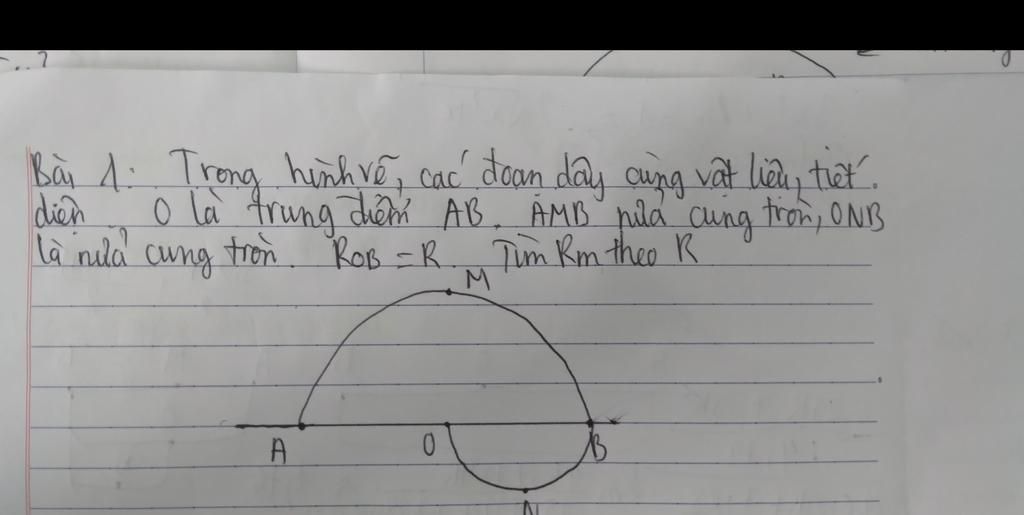 Bài 1: Trong hình vẽ, các đoan dây cùng vật liệu, tiết.
diện O là trung điểm AB. AMB nửa cung tròn, ONB
là nửa cung tròn. ROB = R. Tìm Rm theo R
M
A O B
N